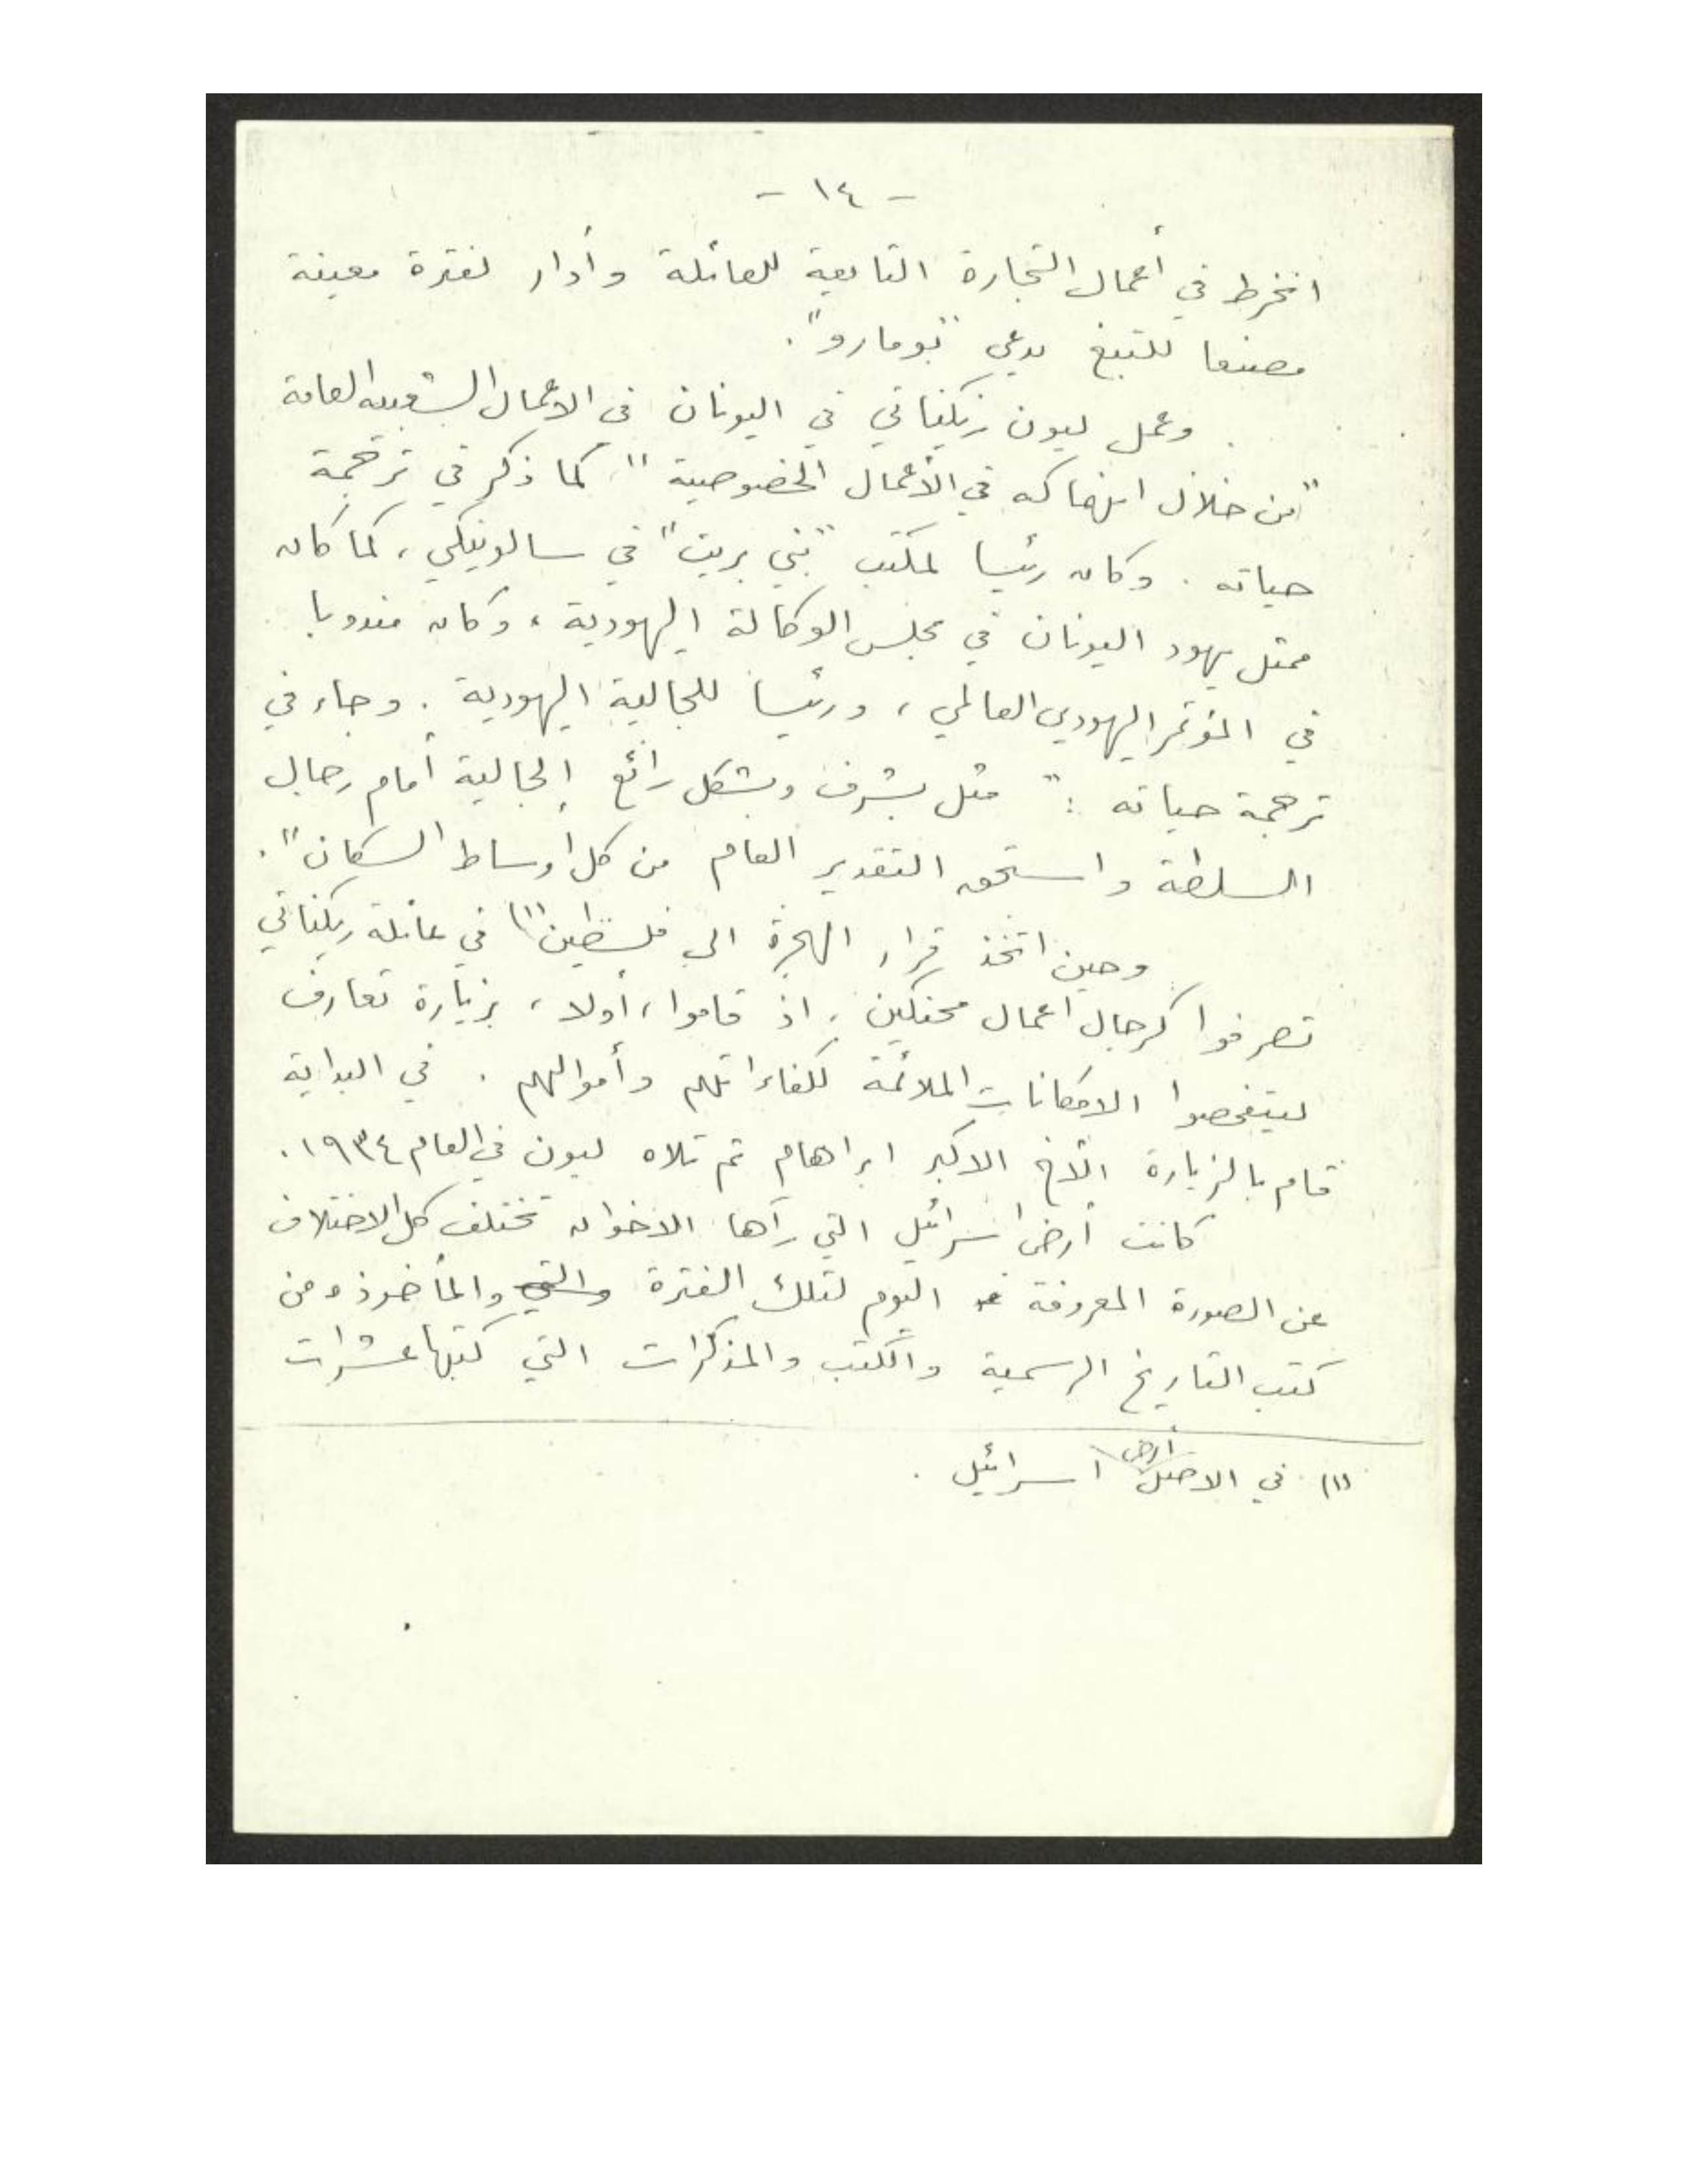 - ١٤ -
انخرط في أعمال التجارة التابعة للعائلة وأدار لفترة معينة
مصنعا للتبغ يدعى "بومارو".
وعمل ليون ريكناتي في اليونان في الاعمال الشعبية العامة
"من خلال انهماكه في الأعمال الخصوصية" كما ذكر في ترجمة
حياته. وكان رئيسا لمكتب "بني بريت" في سالونيكي، كما كان
ممثل يهود اليونان في مجلس الوكالة اليهودية، وكان مندوبا
في المؤتمر اليهودي العالمي، ورئيسا للجالية اليهودية. وجاء في
ترجمة حياته: "مثل بشرف وبشكل رائع الجالية أمام رجال
السلطة واستحق التقدير العام من كل أوساط السكان".
وحين اتخذ قرار الهجرة الى فلسطين(١) في عائلة ريكناتي
تصرفوا كرجال أعمال محنكين. اذ قاموا، أولا، بزيارة تعارف
ليتفحصوا الامكانات الملائمة لكفاءاتهم وأموالهم. في البداية
قام بالزيارة الأخ الاكبر ابراهام ثم تلاه ليون في العام ١٩٣٤.
كانت أرض اسرائيل التي رآها الاخوان تختلف كل الاختلاف
عن الصورة المعروفة اليوم لتلك الفترة والتي والمأخوذة من
كتب التاريخ الرسمية والكتب والمذكرات التي كتبها عشرات
(١) في الاصل أرض اسرائيل.